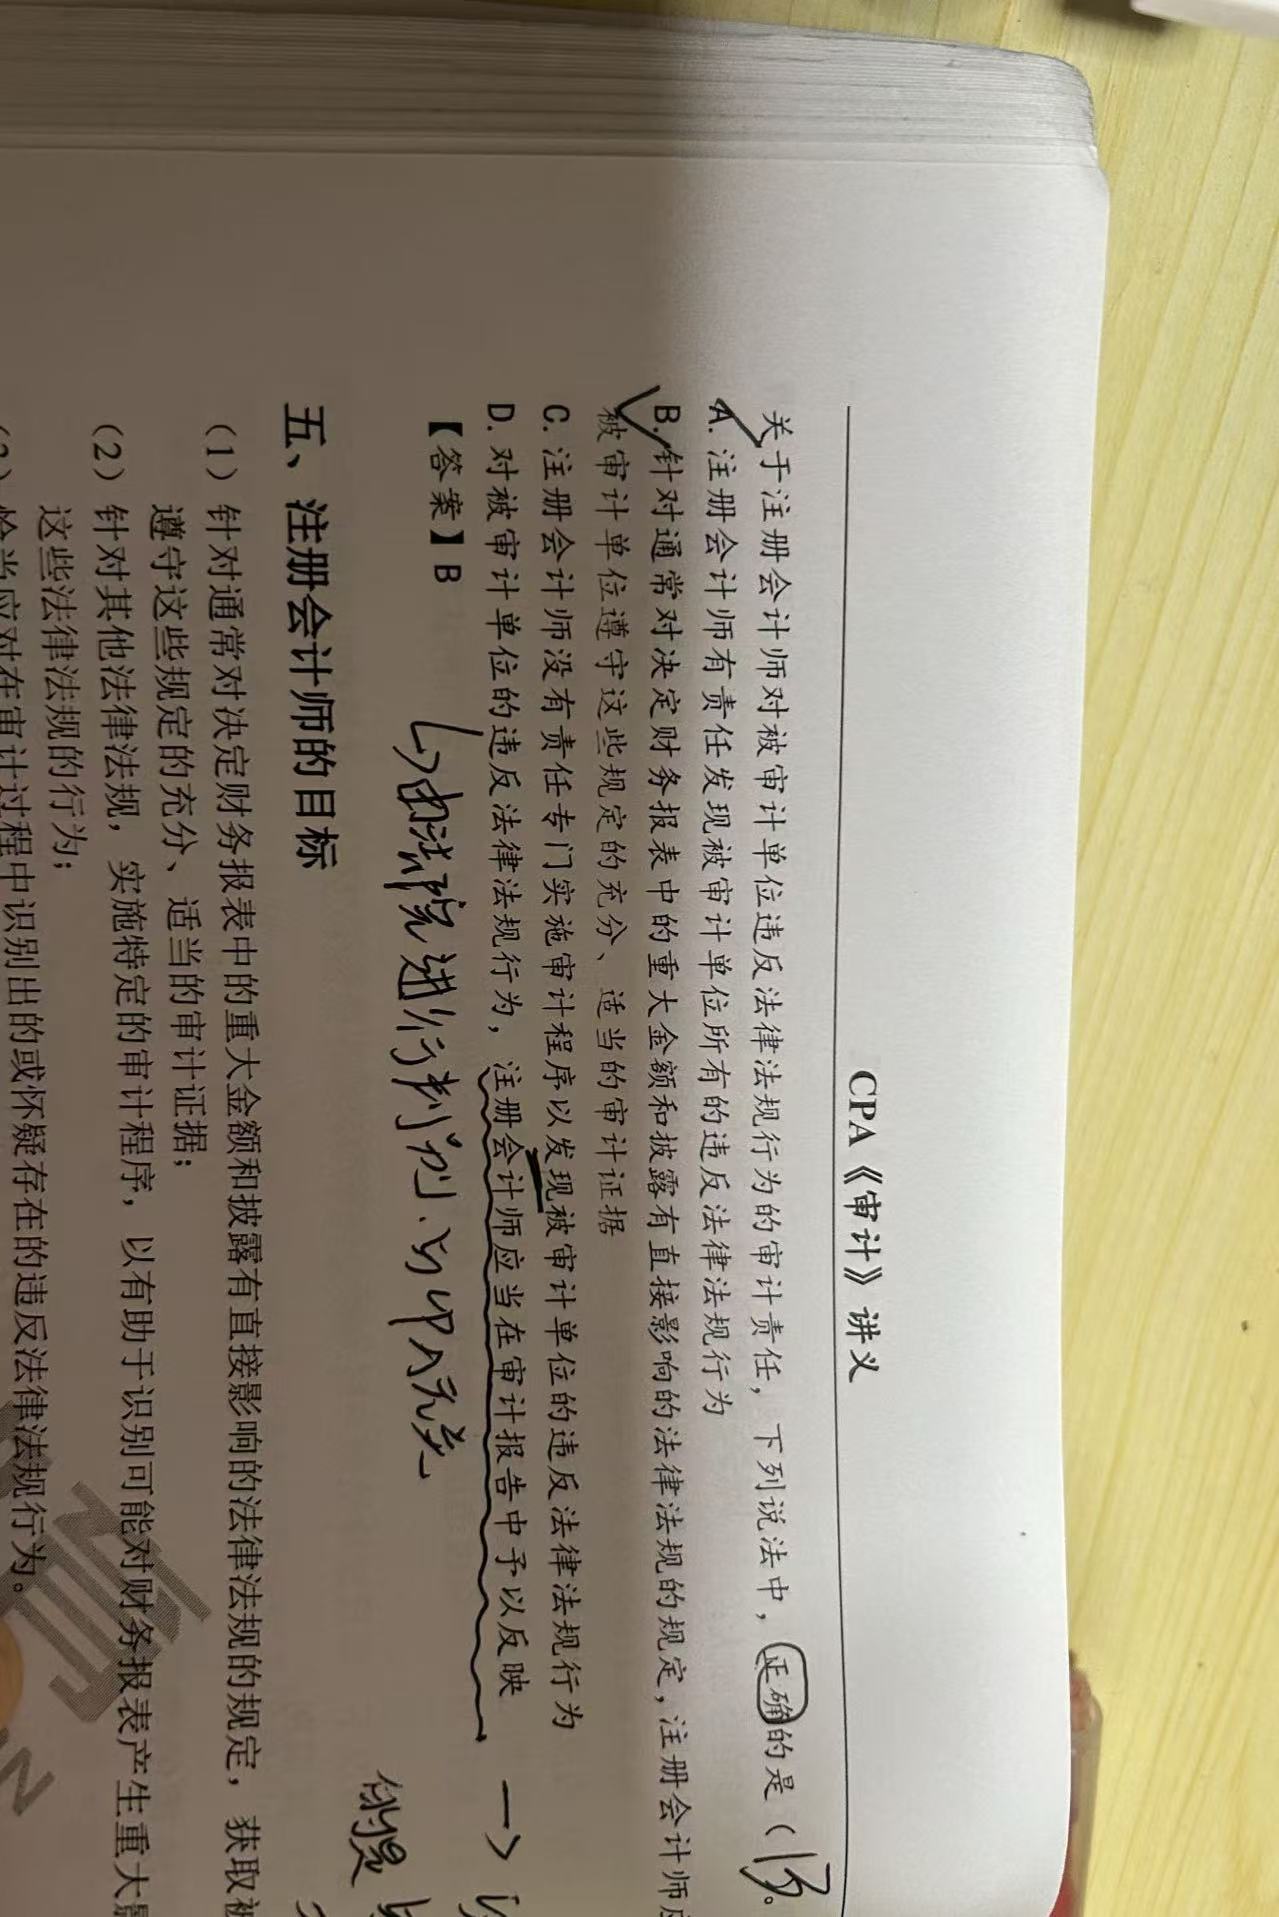 CPA《审计》讲义
关于注册会计师对被审计单位违反法律法规行为的审计责任，下列说法中，正确的是（B）。
A. 注册会计师有责任发现被审计单位所有的违反法律法规行为
B. 针对通常对决定财务报表中的重大金额和披露有直接影响的法律法规的规定，注册会计师应
被审计单位遵守这些规定的充分、适当的审计证据
C. 注册会计师没有责任专门实施审计程序以发现被审计单位的违反法律法规行为
D. 对被审计单位的违反法律法规行为，注册会计师应当在审计报告中予以反映
【答案】B
由法院进行判别、与CPA无关
五、注册会计师的目标
（1）针对通常对决定财务报表中的重大金额和披露有直接影响的法律法规的规定，获取被
遵守这些规定的充分、适当的审计证据；
（2）针对其他法律法规，实施特定的审计程序，以有助于识别可能对财务报表产生重大影
这些法律法规的行为；
恰当应对在审计过程中识别出的或怀疑存在的违反法律法规行为。